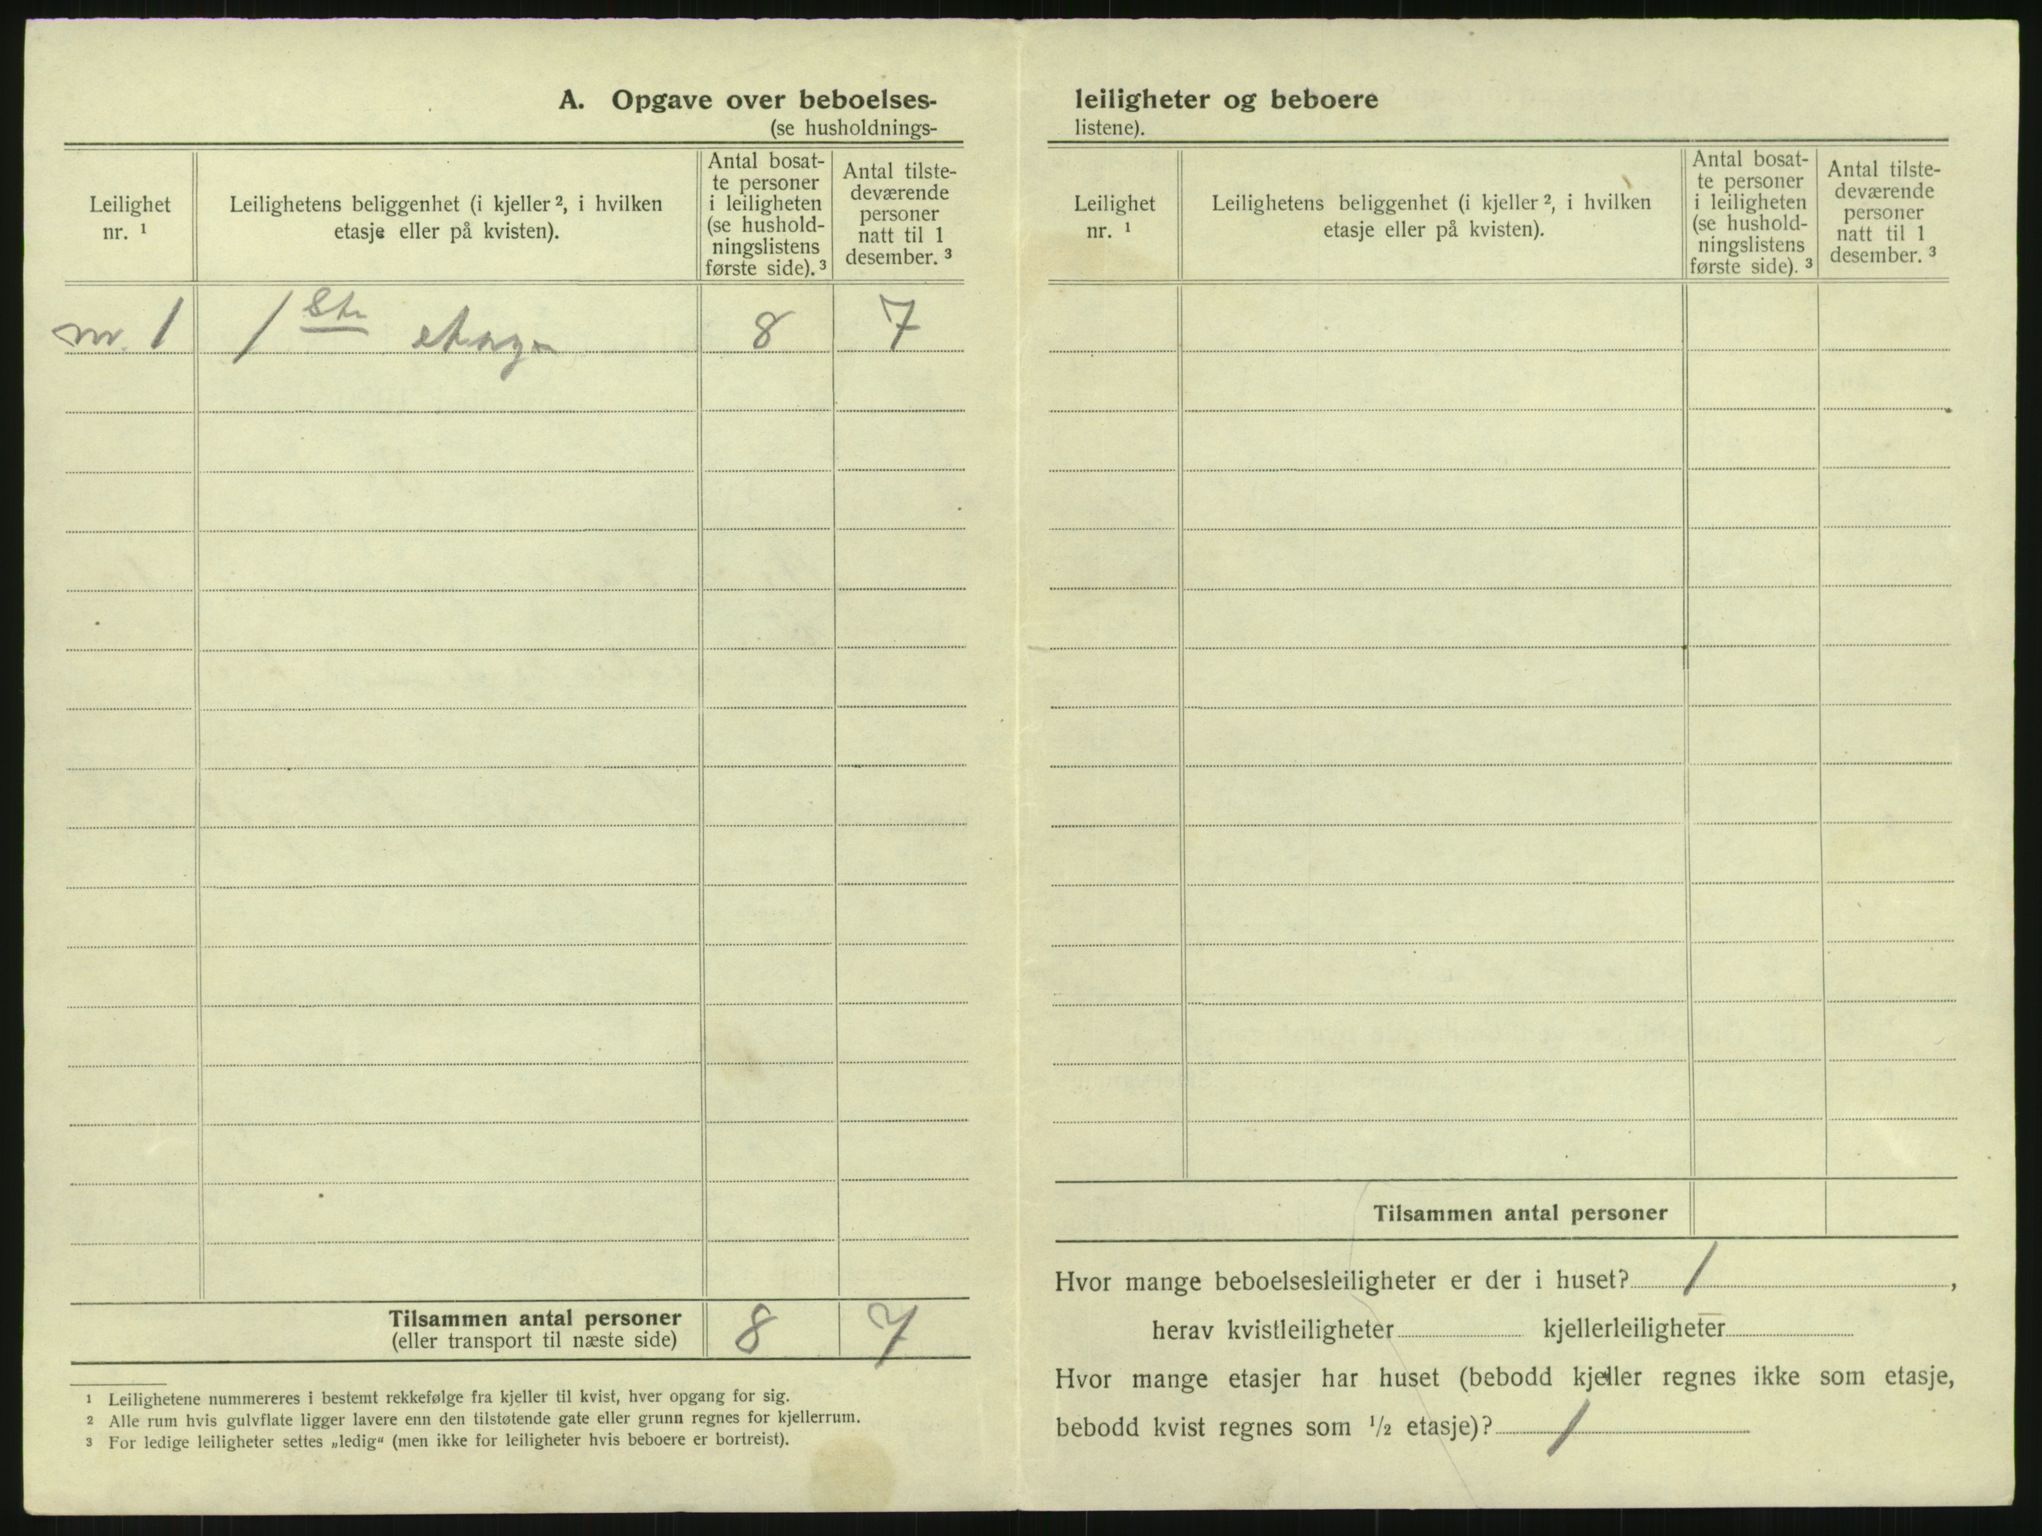 A. Opgave over beboelses-
(se husholdnings-
Leilighet
nr. ¹
Leilighetens beliggenhet (i kjeller ², i hvilken
etasje eller på kvisten).
Antal bosat-
te personer
i leiligheten
(se hushold-
ningslistens
første side). ³
Antal tilste-
deværende
personer
natt til 1
desember. ³
nr. 1 1 ste etage 8 7
Tilsammen antal personer 8 7
(eller transport til næste side)
¹ Leilighetene nummereres i bestemt rekkefølge fra kjeller til kvist, hver opgang for sig.
² Alle rum hvis gulvflate ligger lavere enn den tilstøtende gate eller grunn regnes for kjellerrum.
³ For ledige leiligheter settes „ledig“ (men ikke for leiligheter hvis beboere er bortreist).
leiligheter og beboere
listene).
Leilighet
nr. ¹
Leilighetens beliggenhet (i kjeller ², i hvilken
etasje eller på kvisten).
Antal bosat-
te personer
i leiligheten
(se hushold-
ningslistens
første side). ³
Antal tilste-
deværende
personer
natt til 1
desember. ³
Tilsammen antal personer
Hvor mange beboelsesleiligheter er der i huset? 1 ,
herav kvistleiligheter kjellerleiligheter
Hvor mange etasjer har huset (bebodd kjeller regnes ikke som etasje,
bebodd kvist regnes som ½ etasje)? 1